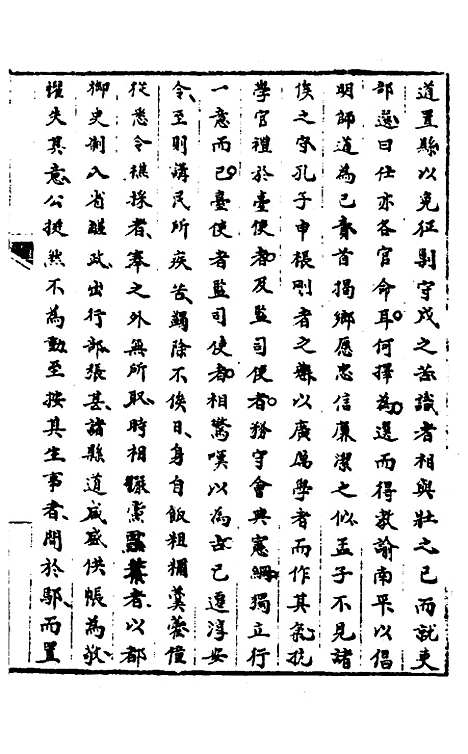 道置縣以免征剿守戍之苦識者相與壯之已而就吏
部選曰仕亦各官命耳何擇為選而得教諭南平以倡
明師道為已責首揭鄉愿忠信廉潔之似孟子不見諸
侯之守孔子申棖剛者之辨以廣厲學者而作其氣抗
學官禮於臺使者及監司使者務守會典憲綱獨立行
一意而已臺使者監司使者相驚嘆以為古已遷淳安
令至則講民所疾苦蠲除不俟日身自飯粗糲羹藜僮
從悉令樵採者奉之外無所取時相黨者以都
御史制入省醝政出行部張甚諸縣道咸盛供帳為敬
懼失其意公挺然不為動至按其生事者聞於鄢而置